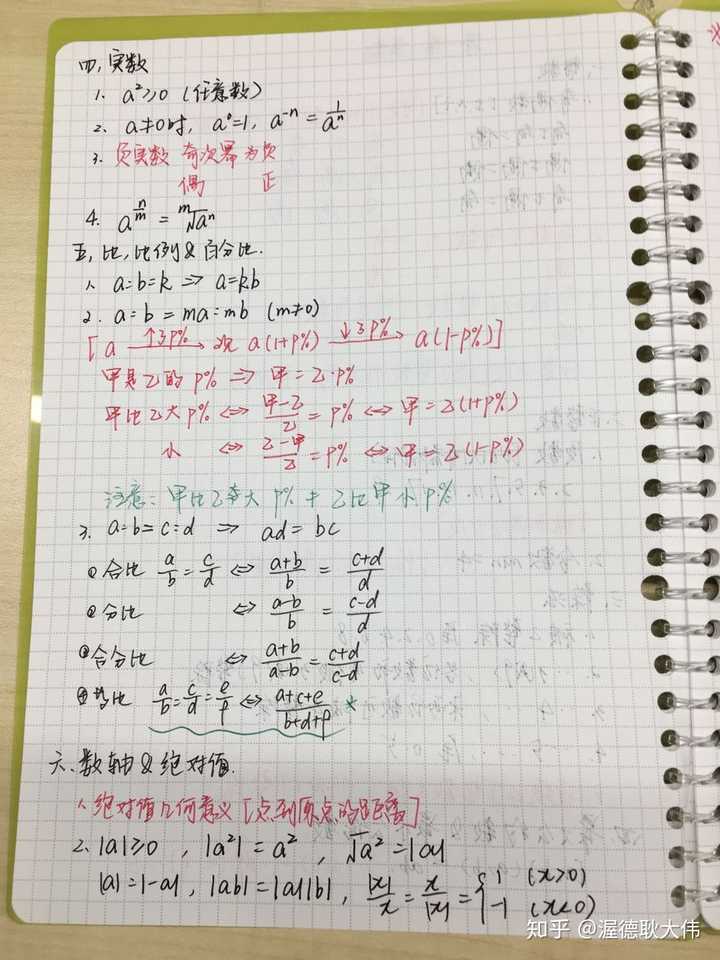 四,实数
1. a²≥0 (任意数)
2. a≠0时, a⁰=1, a⁻ⁿ = 1/aⁿ
3. 负实数 奇次幂为负
偶 正
4. a^(n/m) = ᵐ√aⁿ
五,比,比例&百分比.
1. a:b=k ⇒ a=kb
2. a:b = ma:mb (m≠0)
[a —↑3P%→ 现 a(1+P%) —↓3P%→ a(1-P%)]
甲是乙的 P% ⇒ 甲=乙·P%
甲比乙大 P% ⇔ (甲-乙)/乙 = P% ⇔ 甲=乙(1+P%)
小 ⇔ (乙-甲)/乙 = P% ⇔ 甲=乙(1-P%)
注意: 甲比乙大 P% ≠ 乙比甲小 P%
3. a:b=c:d ⇒ ad=bc
① 合比 a/b = c/d ⇔ (a+b)/b = (c+d)/d
② 分比 ⇔ (a-b)/b = (c-d)/d
③ 合分比 ⇔ (a+b)/(a-b) = (c+d)/(c-d)
④ 等比 a/b = c/d = e/f ⇔ (a+c+e)/(b+d+f) *
六、数轴&绝对值.
1. 绝对值几何意义 [点到原点的距离]
2. |a|≥0, |a²|=a², √a²=|a|
|a|=|-a|, |ab|=|a||b|, |x|/x = x/|x| = { 1 (x>0)
-1 (x<0)
知乎 @渥德耿大伟